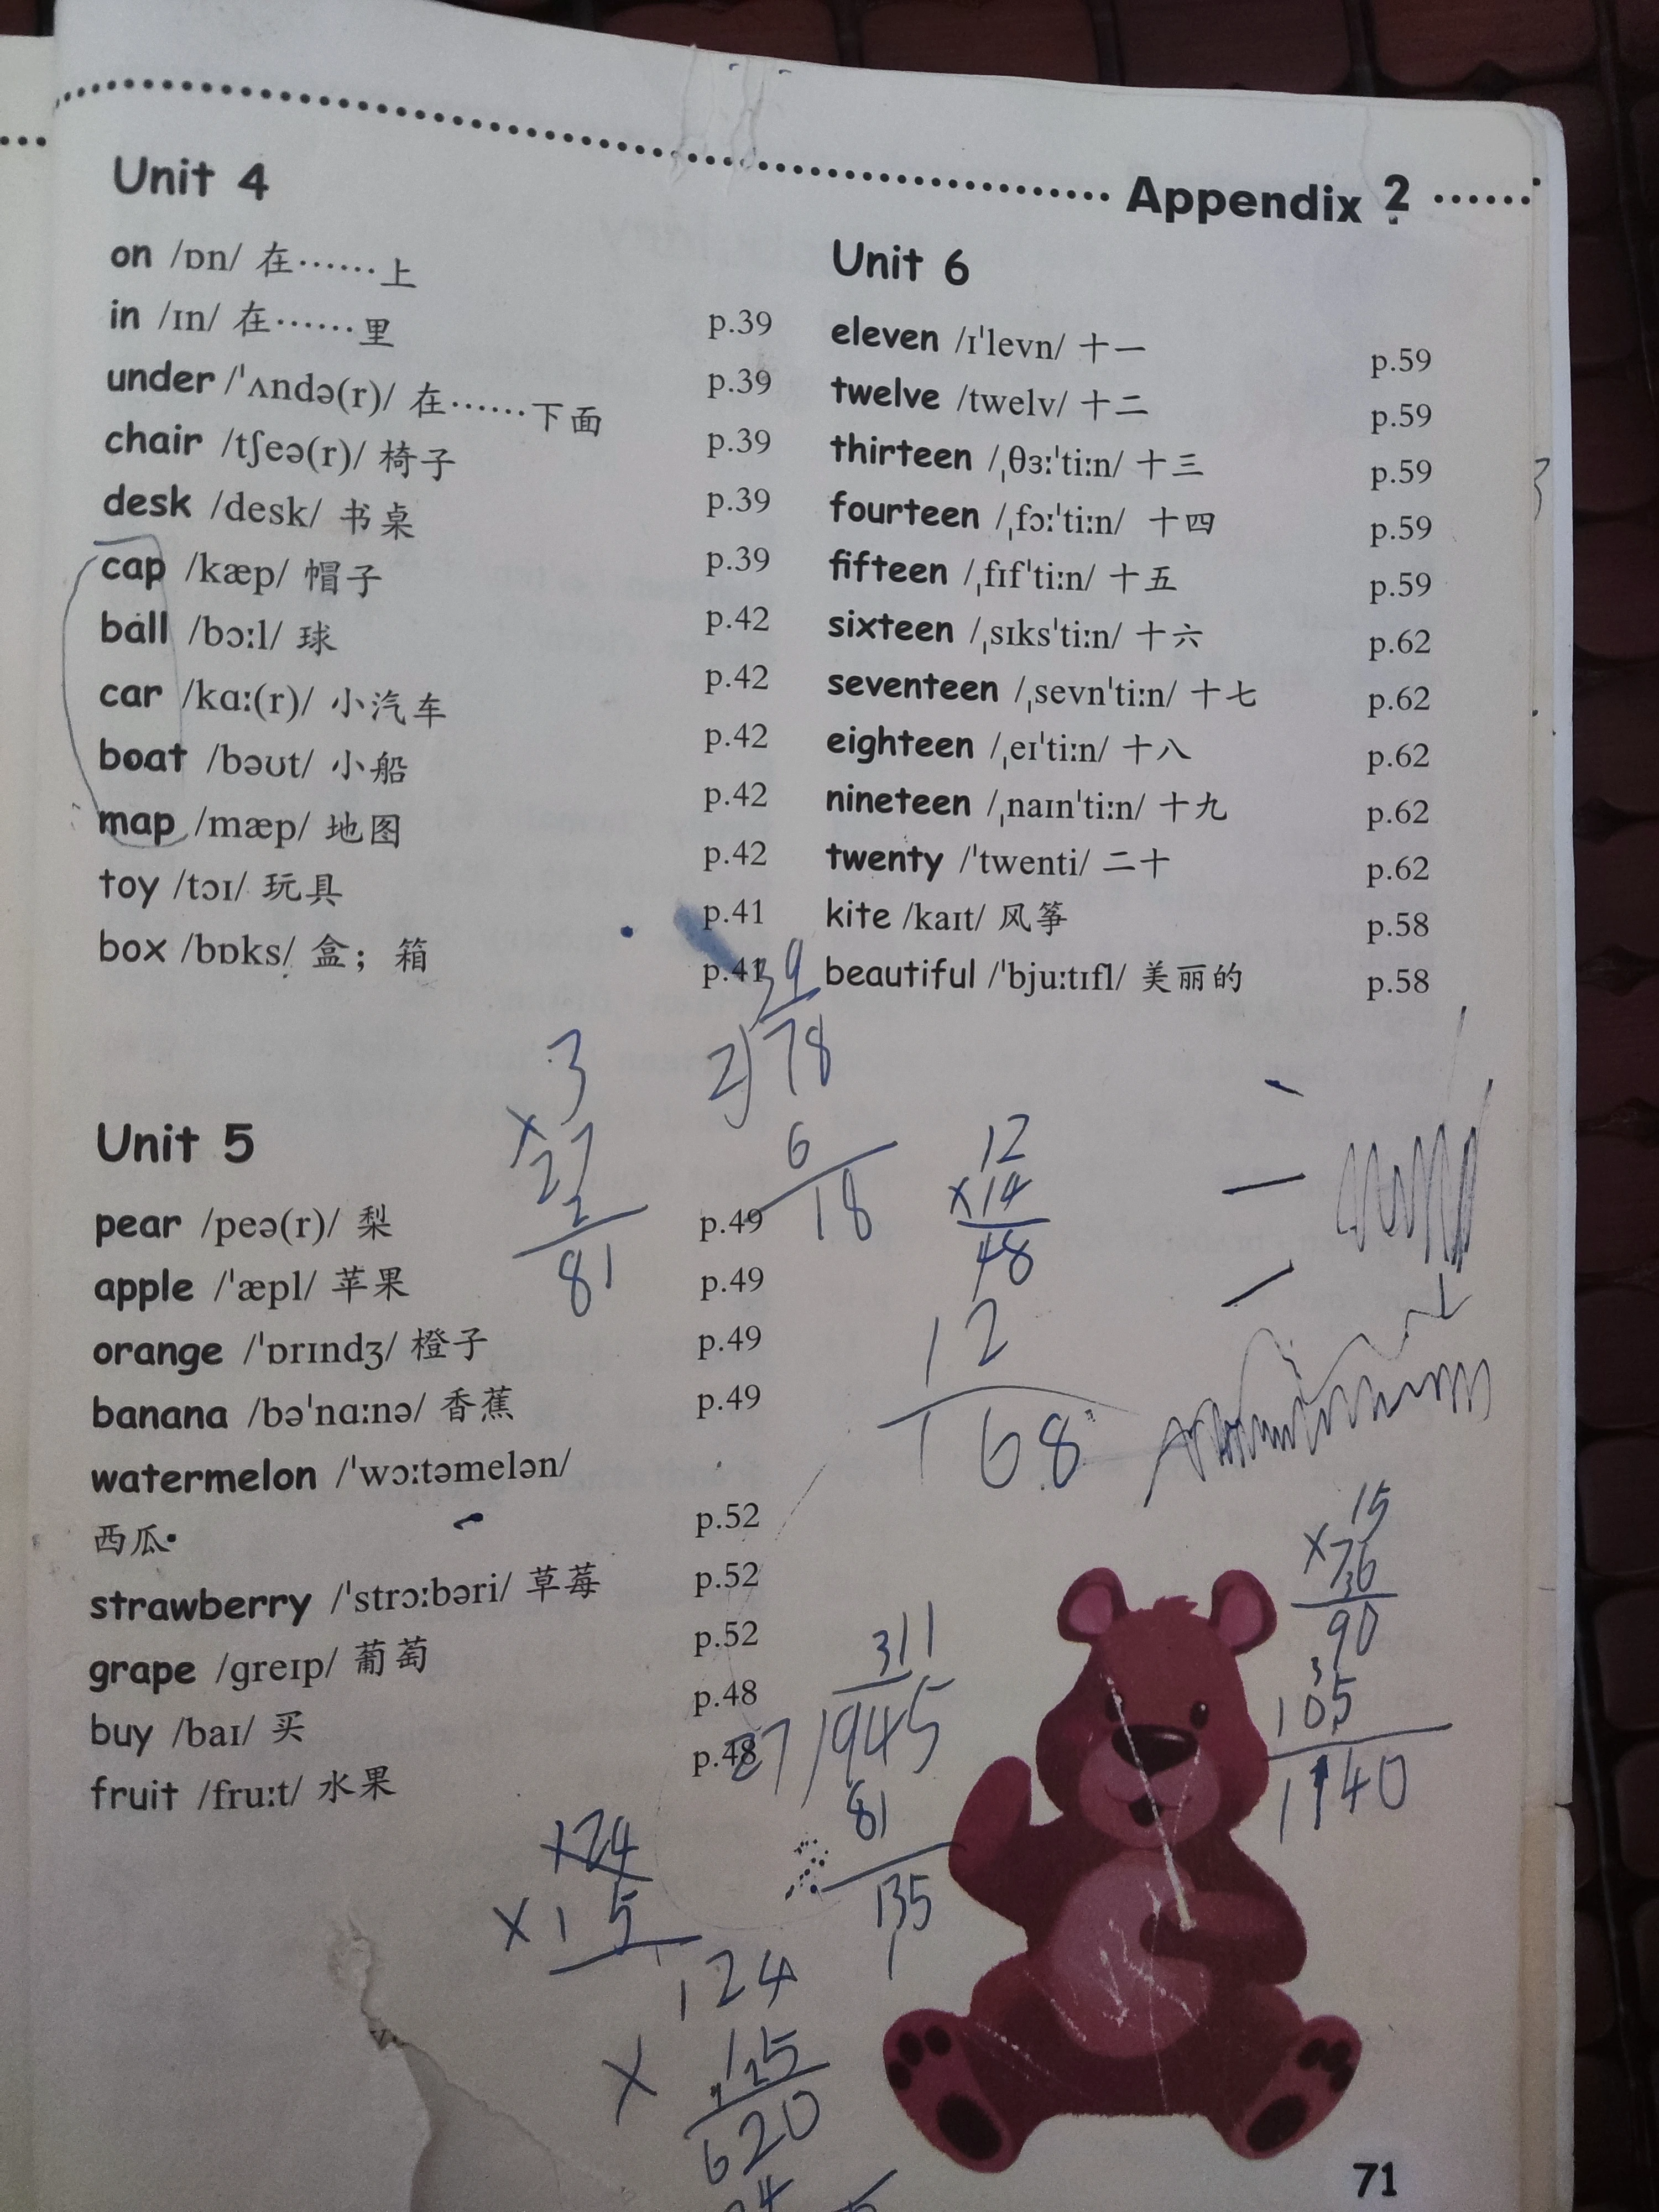 Appendix 2
Unit 4
on /ɒn/ 在……上 p.39
in /ɪn/ 在……里 p.39
under /ˈʌndə(r)/ 在……下面 p.39
chair /tʃeə(r)/ 椅子 p.39
desk /desk/ 书桌 p.39
cap /kæp/ 帽子 p.42
ball /bɔːl/ 球 p.42
car /kɑː(r)/ 小汽车 p.42
boat /bəʊt/ 小船 p.42
map /mæp/ 地图 p.42
toy /tɔɪ/ 玩具 p.41
box /bɒks/ 盒；箱 p.41
Unit 5
pear /peə(r)/ 梨 p.49
apple /ˈæpl/ 苹果 p.49
orange /ˈɒrɪndʒ/ 橙子 p.49
banana /bəˈnɑːnə/ 香蕉 p.49
watermelon /ˈwɔːtəmelən/
西瓜 p.52
strawberry /ˈstrɔːbəri/ 草莓 p.52
grape /ɡreɪp/ 葡萄 p.52
buy /baɪ/ 买 p.48
fruit /fruːt/ 水果 p.48
Unit 6
eleven /ɪˈlevn/ 十一 p.59
twelve /twelv/ 十二 p.59
thirteen /ˌθɜːˈtiːn/ 十三 p.59
fourteen /ˌfɔːˈtiːn/ 十四 p.59
fifteen /ˌfɪfˈtiːn/ 十五 p.59
sixteen /ˌsɪksˈtiːn/ 十六 p.62
seventeen /ˌsevnˈtiːn/ 十七 p.62
eighteen /ˌeɪˈtiːn/ 十八 p.62
nineteen /ˌnaɪnˈtiːn/ 十九 p.62
twenty /ˈtwenti/ 二十 p.62
kite /kaɪt/ 风筝 p.58
beautiful /ˈbjuːtɪfl/ 美丽的 p.58
3
×27
2
81
39
2)78
6
18
12
×14
48
12
168
15
×76
3
90
3
105
1140
311
27)945
81
135
×24
×15
124
×125
620
71